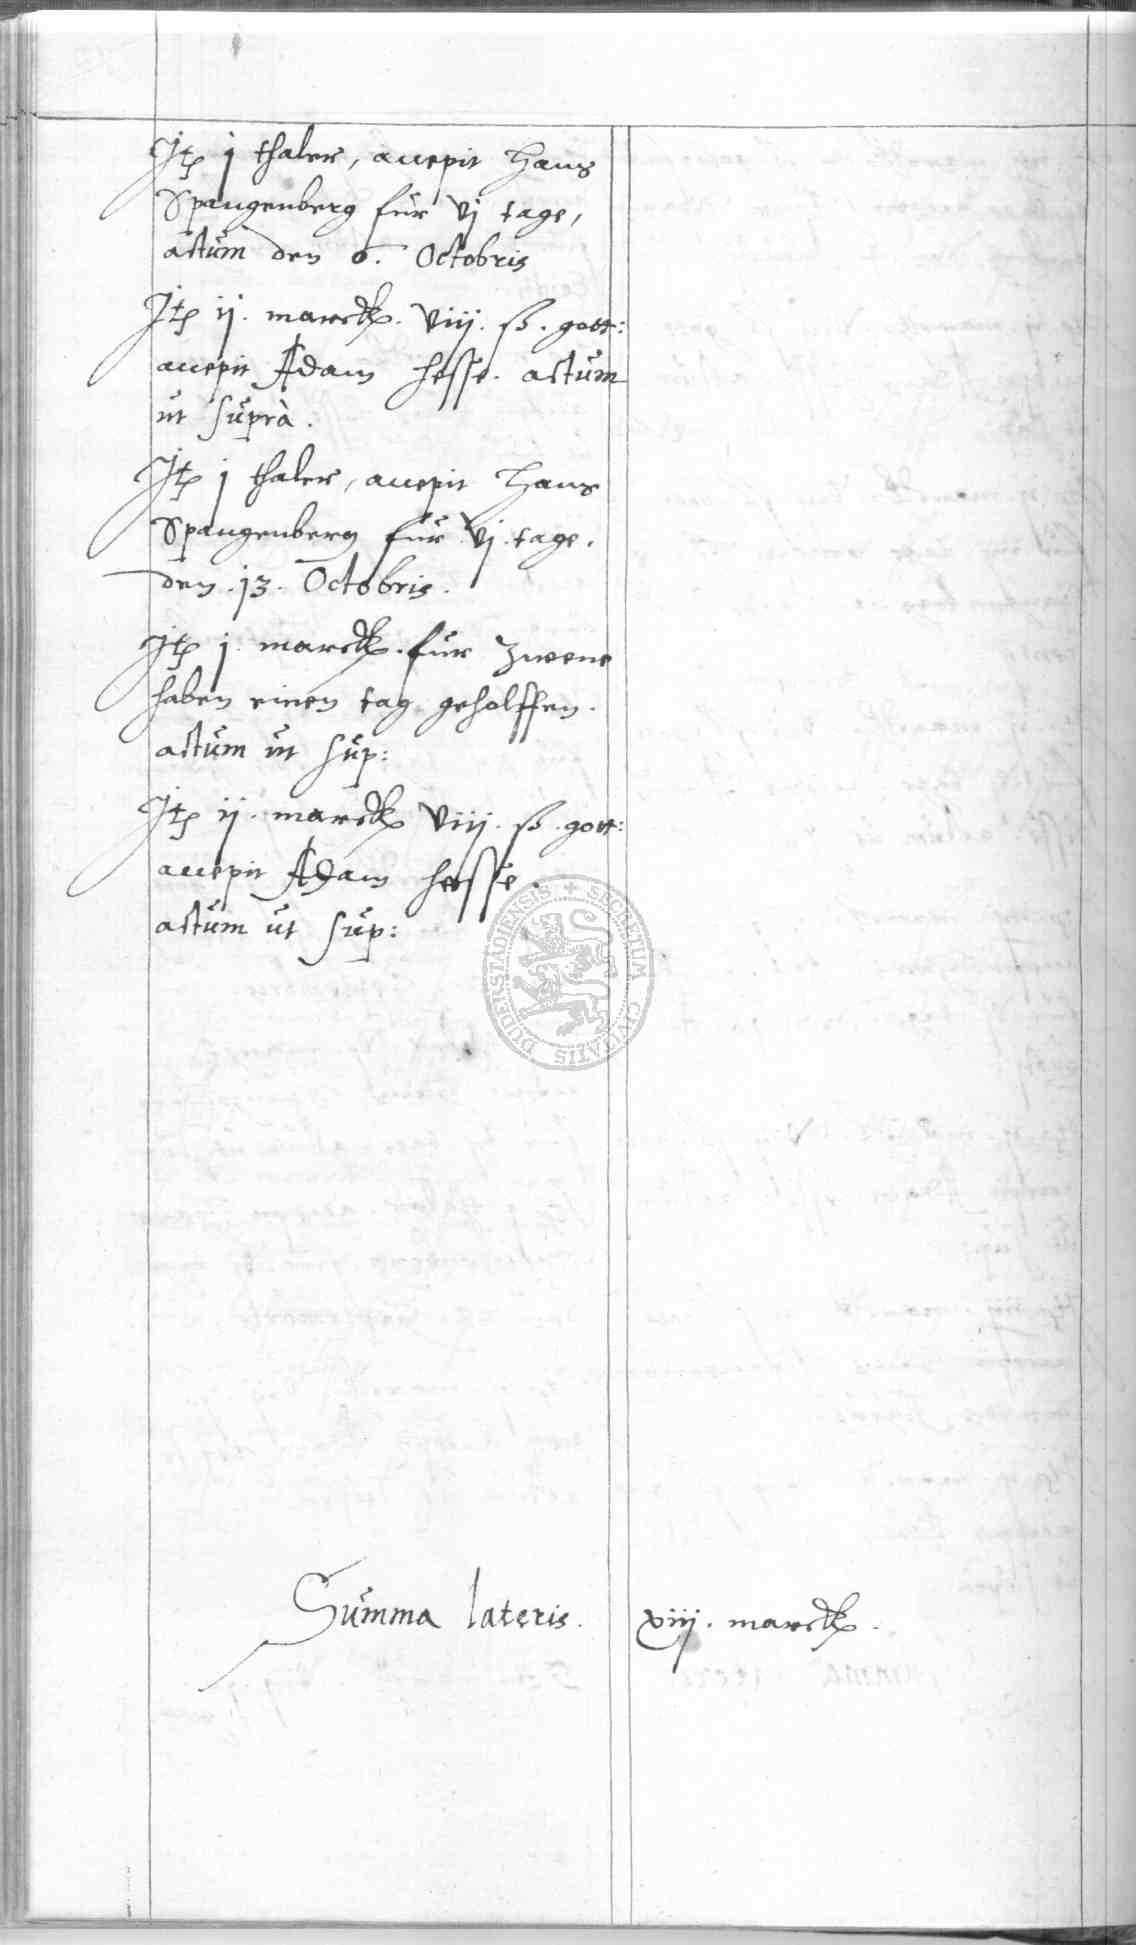 Itē j thaler, accepit Hans
Spangenberg für vj tage,
actum den 6. Octobris
Itē ij. marck. viij. ß. gott:
accepit Adam Hesse. actum
ut suprà.
Itē j thaler, accepit Hans
Spangenberg für vj. tage.
den .13. Octobris.
Itē j. marck. für zweene
haben einen tag geholffen.
actum ut sup:
Itē ij. marck viij. ß. gott:
accepit Adam Hesse.
actum ut sup:
SECRETUM CIVITATIS DUDERSTADIENSIS
Summa lateris. xiij. marck.